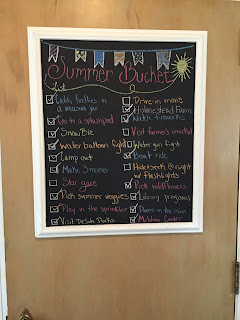 Summer Bucket
List
Catch fireflies in
a mason jar
Go to a splashpad
Snow Biz
Water balloon fight
Camp out
Make S'mores
Star gaze
Pick summer veggies
Play in the sprinkler
Visit Parks
Drive-in movie
Farm
Watch fireworks
Visit farmer's market
Water gun fight
Boat ride
Hide & seek @ night
w/ flashlights
Pick wildflowers
Library programs
Dance in the rain